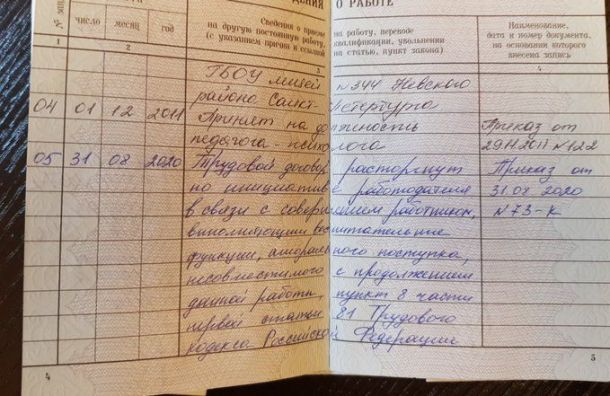 ДЕНИЯ О РАБОТЕ
№ зап
число месяц год
Сведения о приеме на работу, переводе
на другую постоянную работу, квалификации, увольнении
(с указанием причин и ссылкой на статью, пункт закона)
Наименование,
дата и номер документа,
на основании которого
внесена запись
1 2 3 4
ГБОУ лицей №344 Невского
района Санкт-Петербурга
04 01 12 2011 Принят на должность Приказ от
педагога-психолога 29.11.2011 №122
05 31 08 2020 Трудовой договор расторгнут Приказ от
по инициативе работодателя 31.08 2020
в связи с совершением работником, №73-к
выполняющим воспитательные
функции, аморального поступка,
несовместимого с продолжением
данной работы, пункт 8 части
первой статьи 81 Трудового
кодекса Российской Федерации
4 5